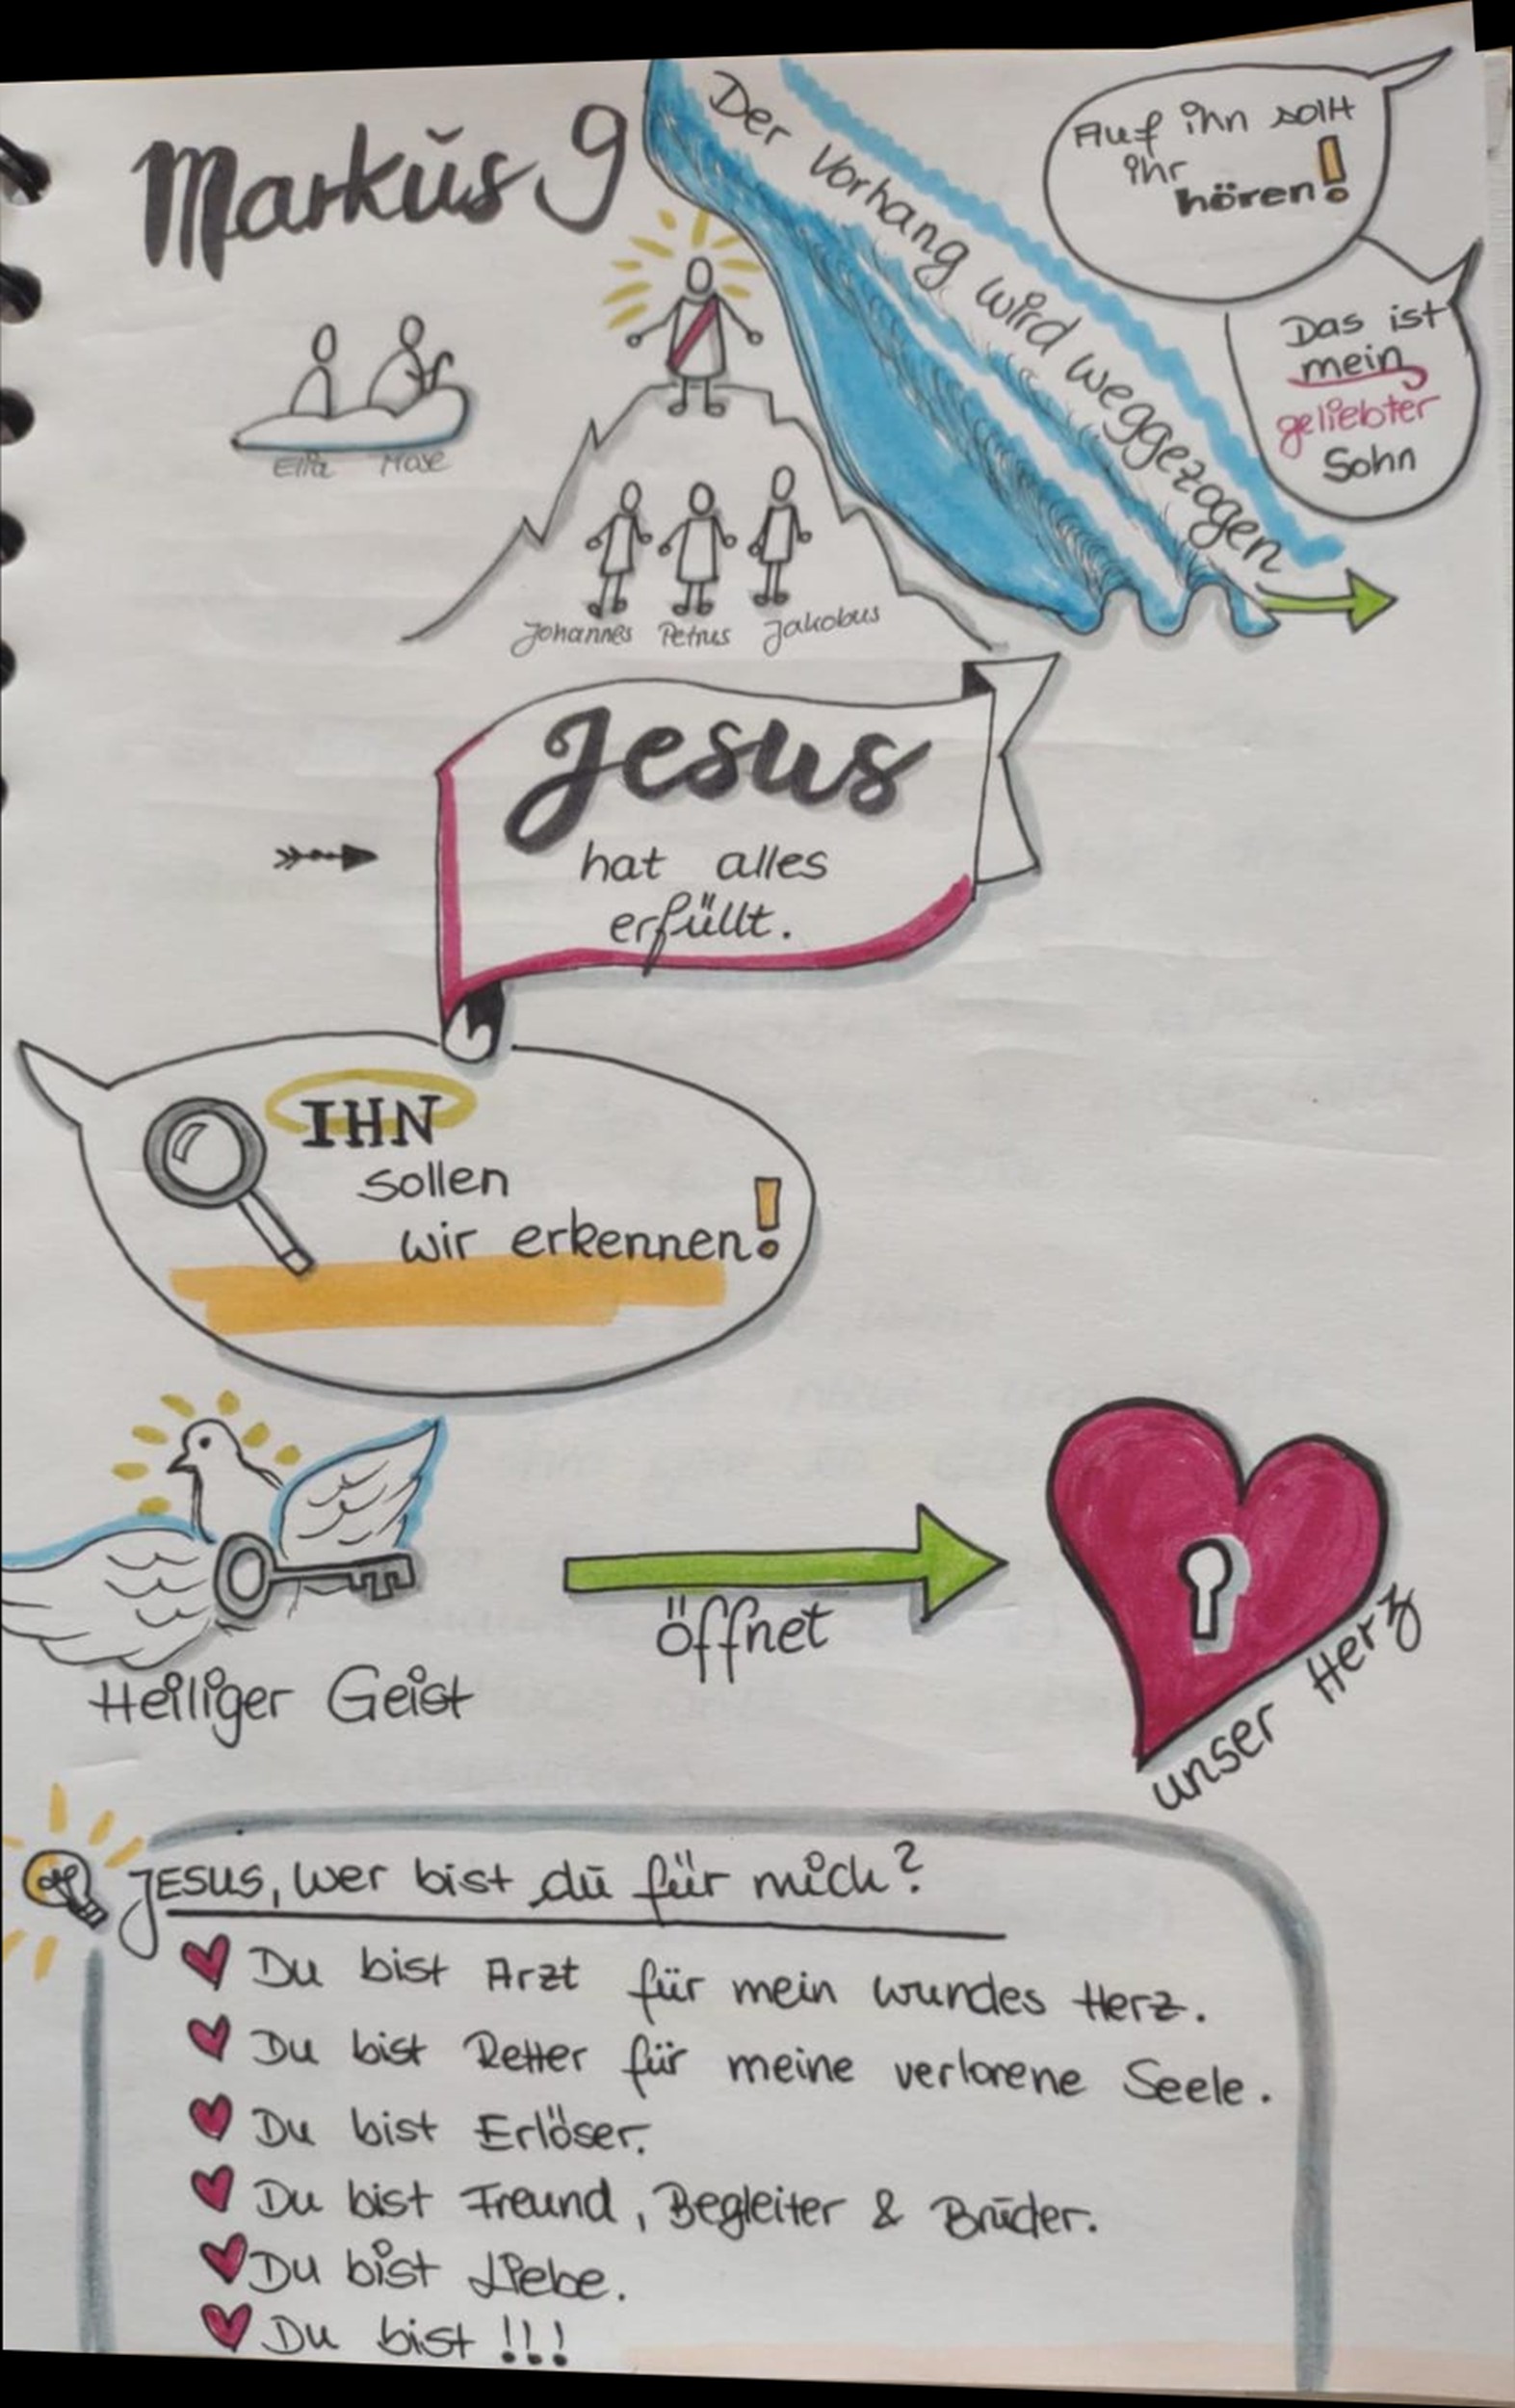 Markus 9
Der Vorhang wird weggezogen
Auf ihn sollt
ihr
hören!
Das ist
mein
geliebter
Sohn
Elia Mose
Johannes Petrus Jakobus
Jesus
hat alles
erfüllt.
IHN
sollen
wir erkennen!
Heiliger Geist
öffnet
unser Herz
JESUS, wer bist du für mich?
Du bist Arzt für mein wundes Herz.
Du bist Retter für meine verlorene Seele.
Du bist Erlöser.
Du bist Freund, Begleiter & Bruder.
Du bist Liebe.
Du bist !!!